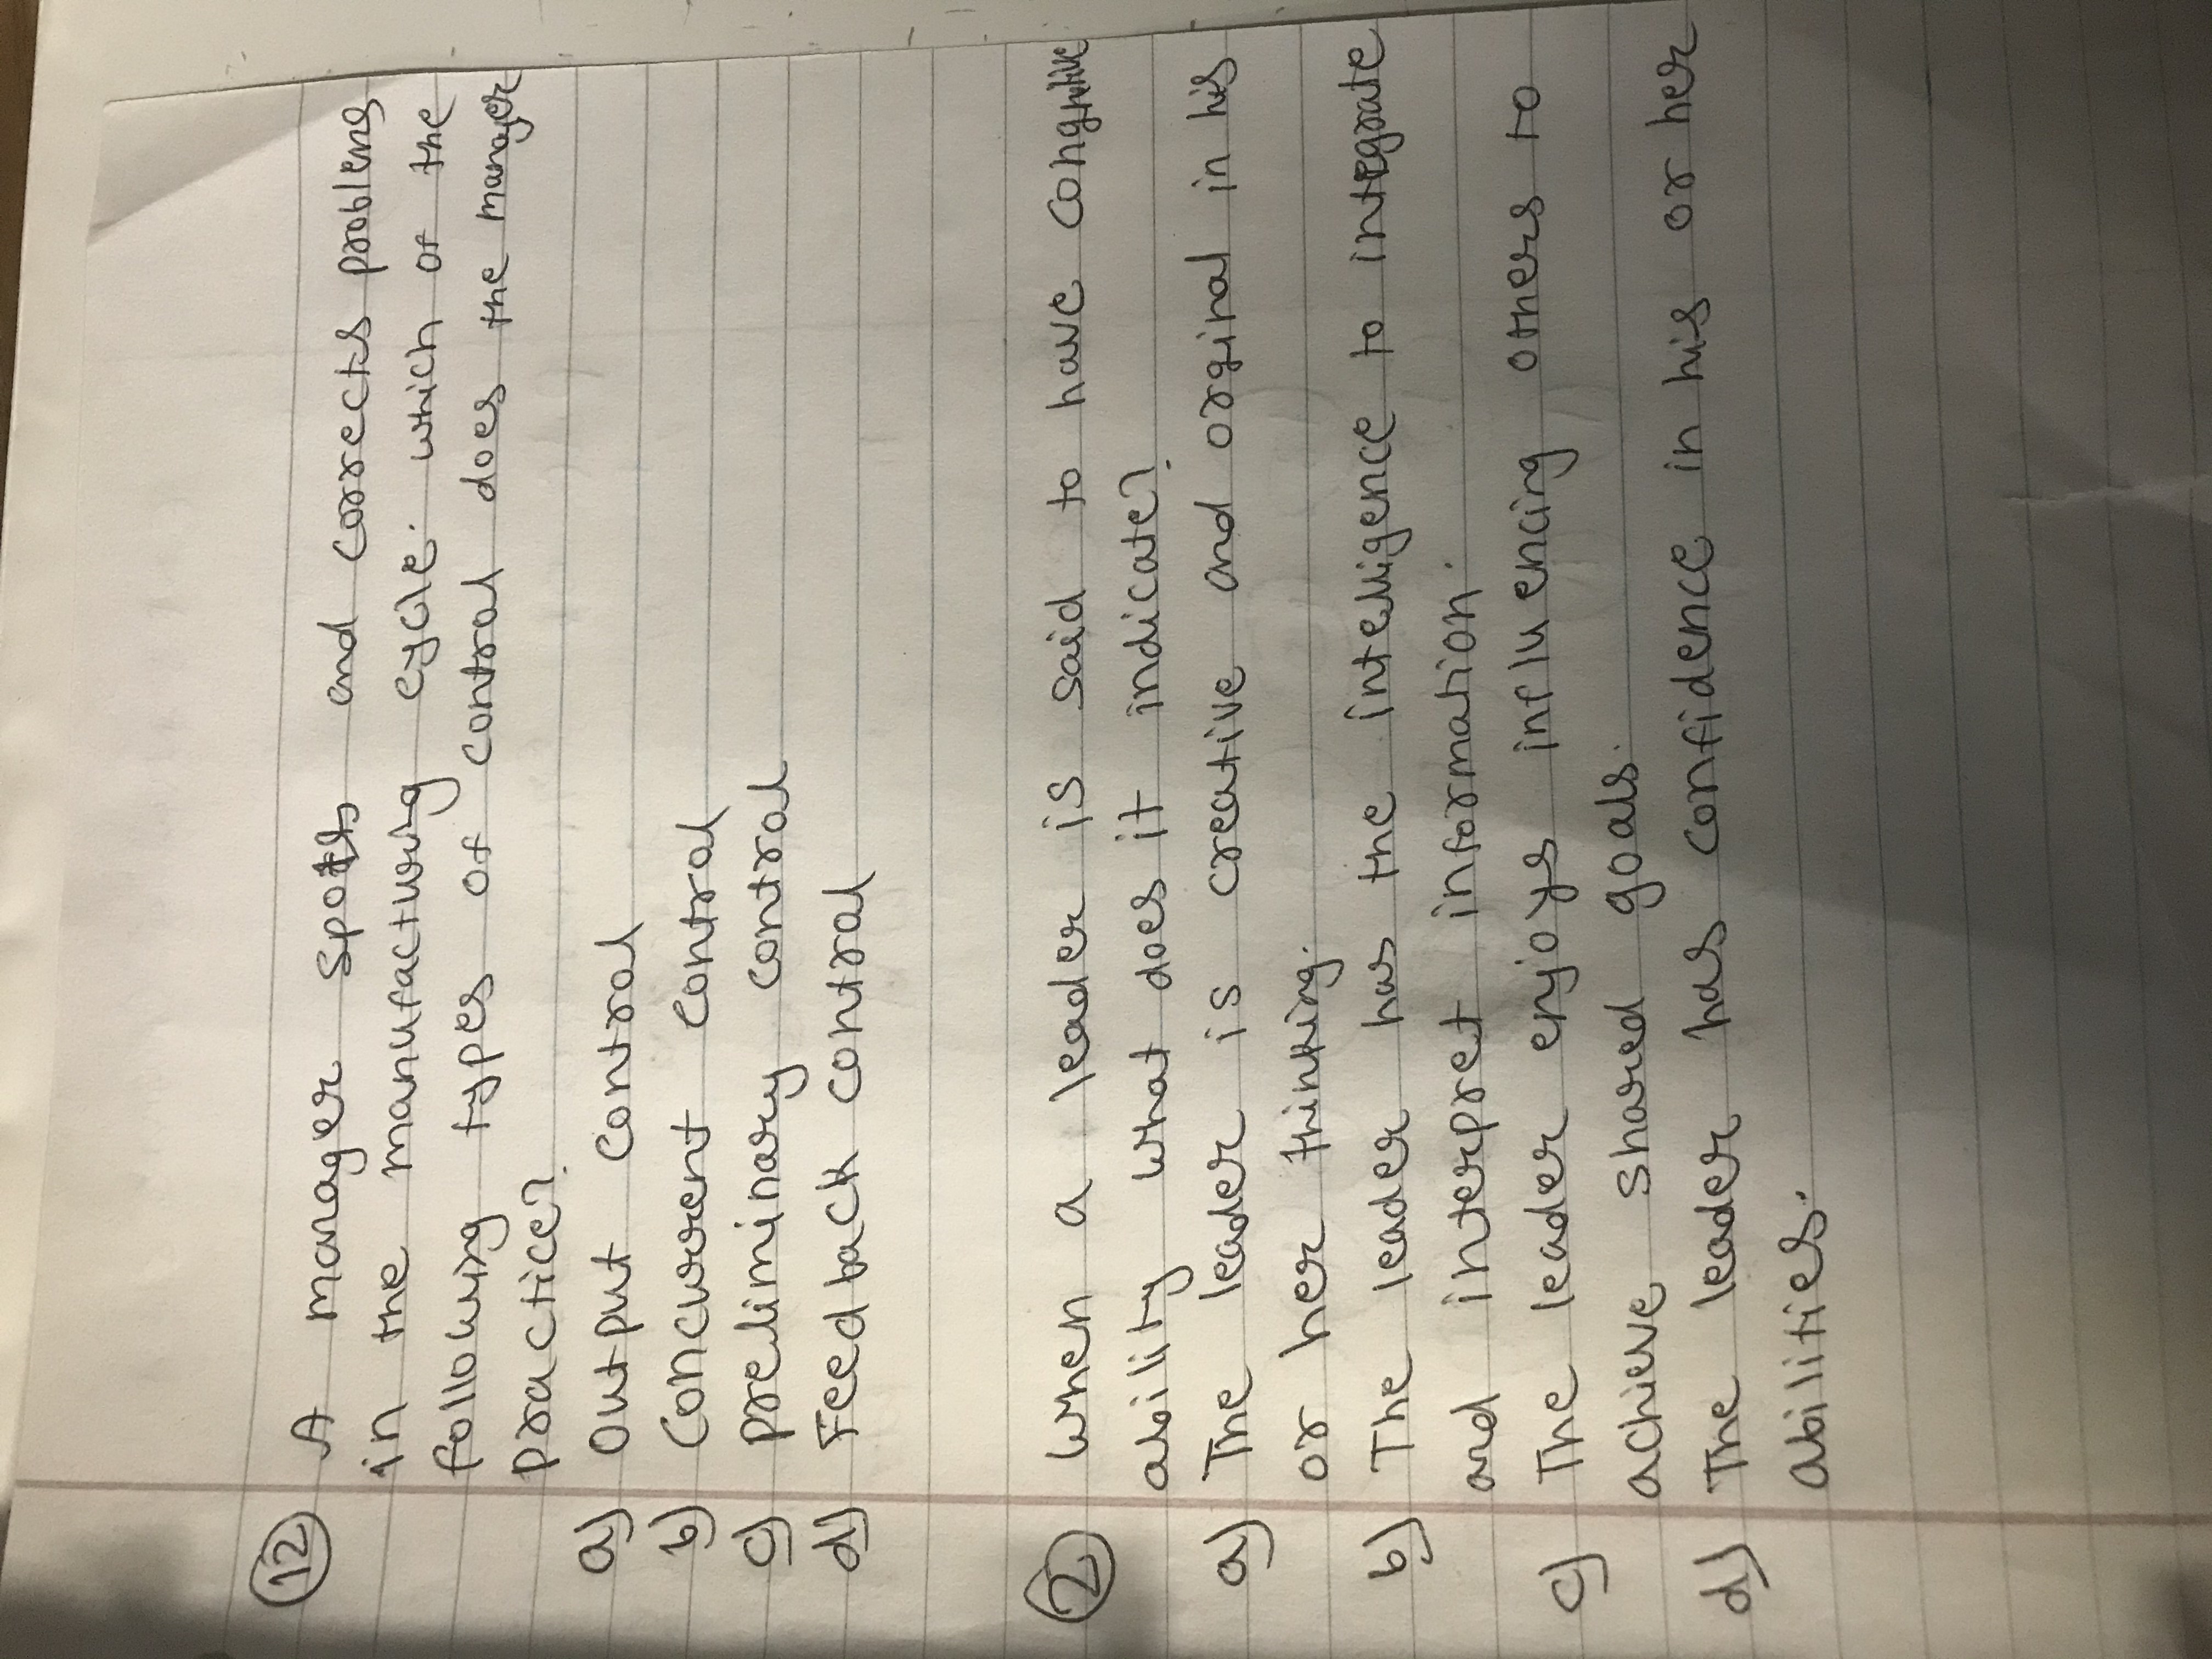 12 A manager spots and corrects problems
in the manufacturing cycle. which of the
following types of control does the manager
practice?
a) Output control
b) Concurrent control
c) preliminary control
d) Feedback control
2 When a leader is said to have
ability what does it indicate?
a) The leader is creative and orginal in his
or her thinking.
b) The leader has the intelligence to integrate
and interpret information.
c) The leader enjoys influencing others to
achieve shared goals.
d) The leader has confidence in his or her
abilities.